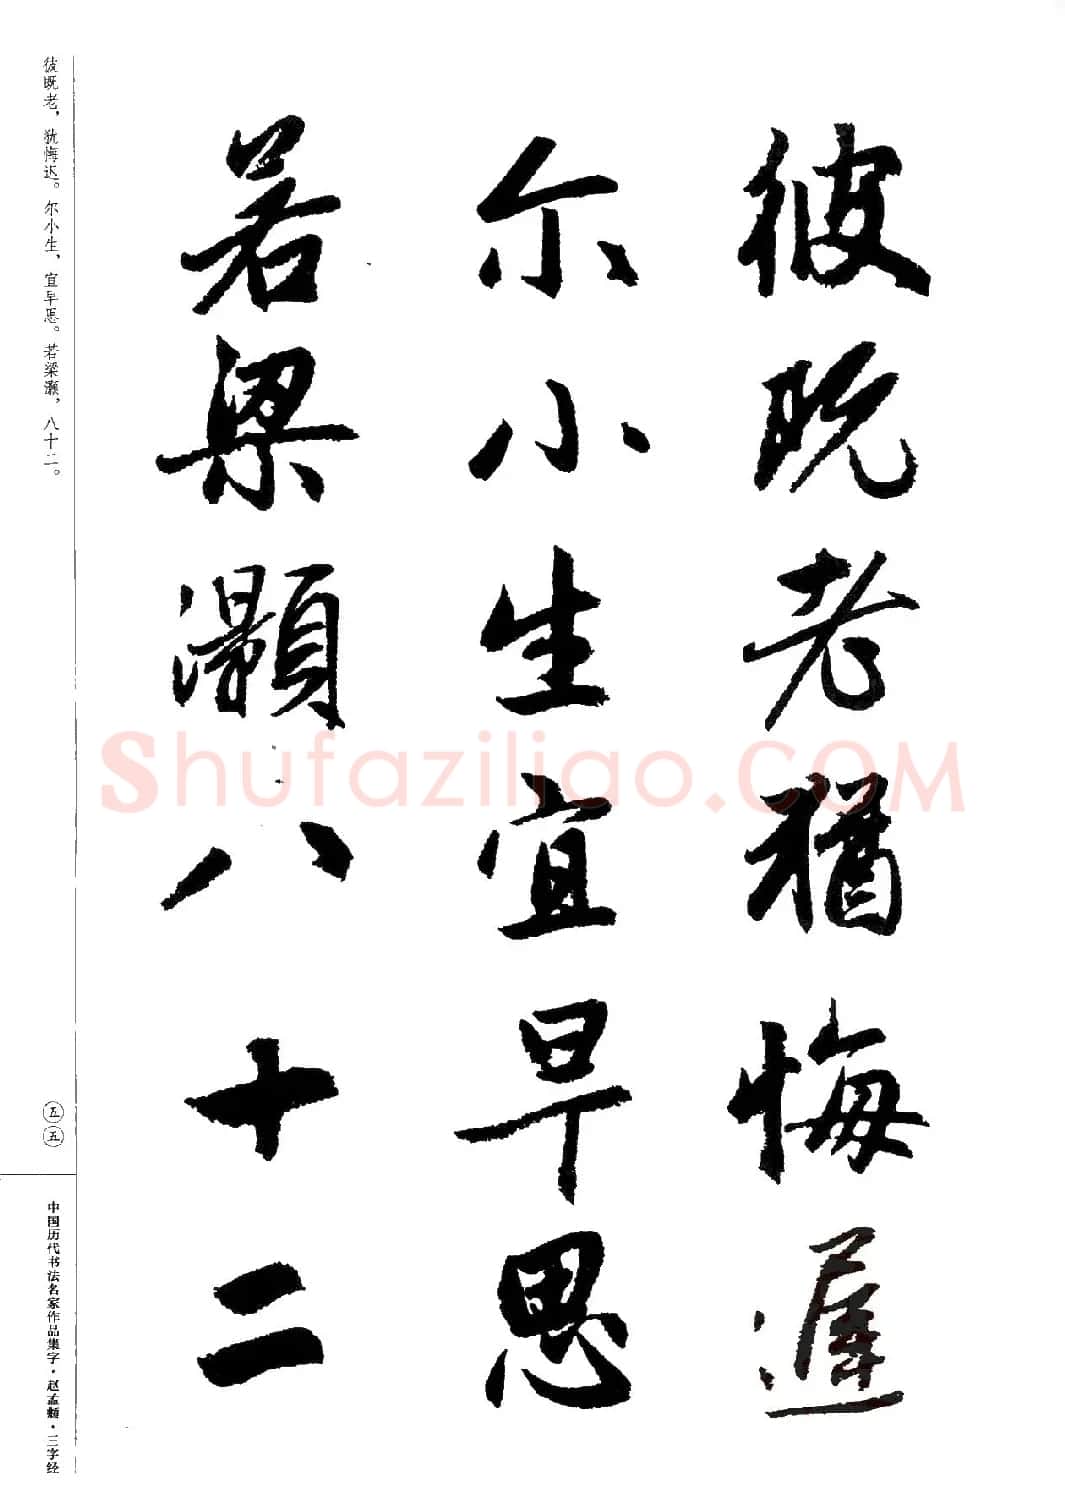 彼既老猶悔遲
尔小生宜早思
若梁灝八十二
彼既老，犹悔迟。尔小生，宜早思。若梁灏，八十二。
五五
中国历代书法名家作品集字·赵孟頫·三字经
Shufaziliao.COM